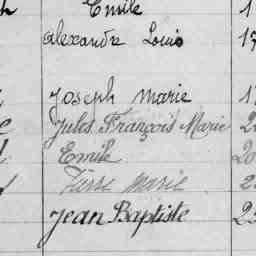 Emile
alexandre Louis
Joseph marie
Jules François Marie
Emile
Pierre Marie
Jean Baptiste